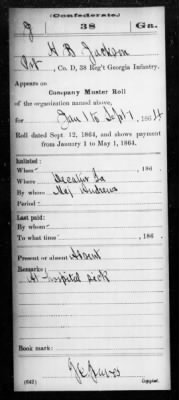 (Confederate.)
J 38 Ga.
H B Jackson
Pvt, Co. D, 38 Reg't Georgia Infantry.
Appears on
Company Muster Roll
of the organization named above,
for Jan 1 to Sept 1, 1864
Roll dated Sept. 12, 1864, and shows payment
from January 1 to May 1, 1864.
Enlisted:
When , 186 .
Where Decatur Ga
By whom Maj Andrews
Period
Last paid:
By whom
To what time , 186 .
Present or absent Absent
Remarks: At hospital sick
Book mark:
(642) Copyist.